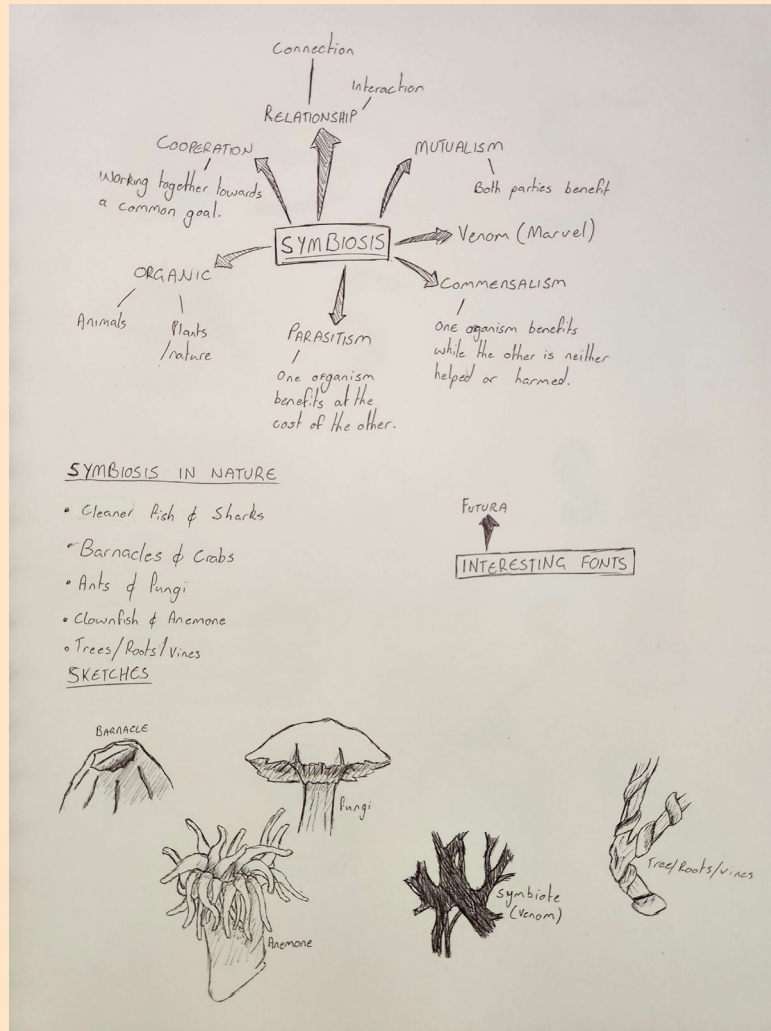 Connection
Interaction
RELATIONSHIP
COOPERATION
Working together towards
a common goal.
MUTUALISM
Both parties benefit
SYMBIOSIS
Venom (Marvel)
ORGANIC
Animals
Plants
/nature
COMMENSALISM
One organism benefits
while the other is neither
helped or harmed.
PARASITISM
One organism
benefits at the
cost of the other.
SYMBIOSIS IN NATURE
• Cleaner Fish & Sharks
• Barnacles & Crabs
• Ants & Fungi
• Clownfish & Anemone
• Trees/Roots/Vines
FUTURA
INTERESTING FONTS
SKETCHES
BARNACLE
Fungi
Anemone
Symbiote
(Venom)
Tree/Roots/Vines